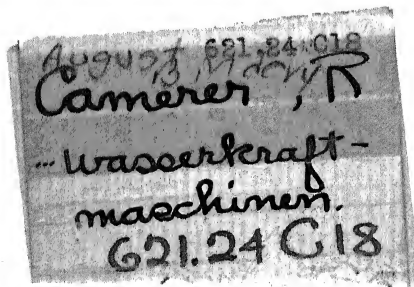 August 621.24:C18
Camerer, R
... wasserkraft-
maschinen.
621.24 C18